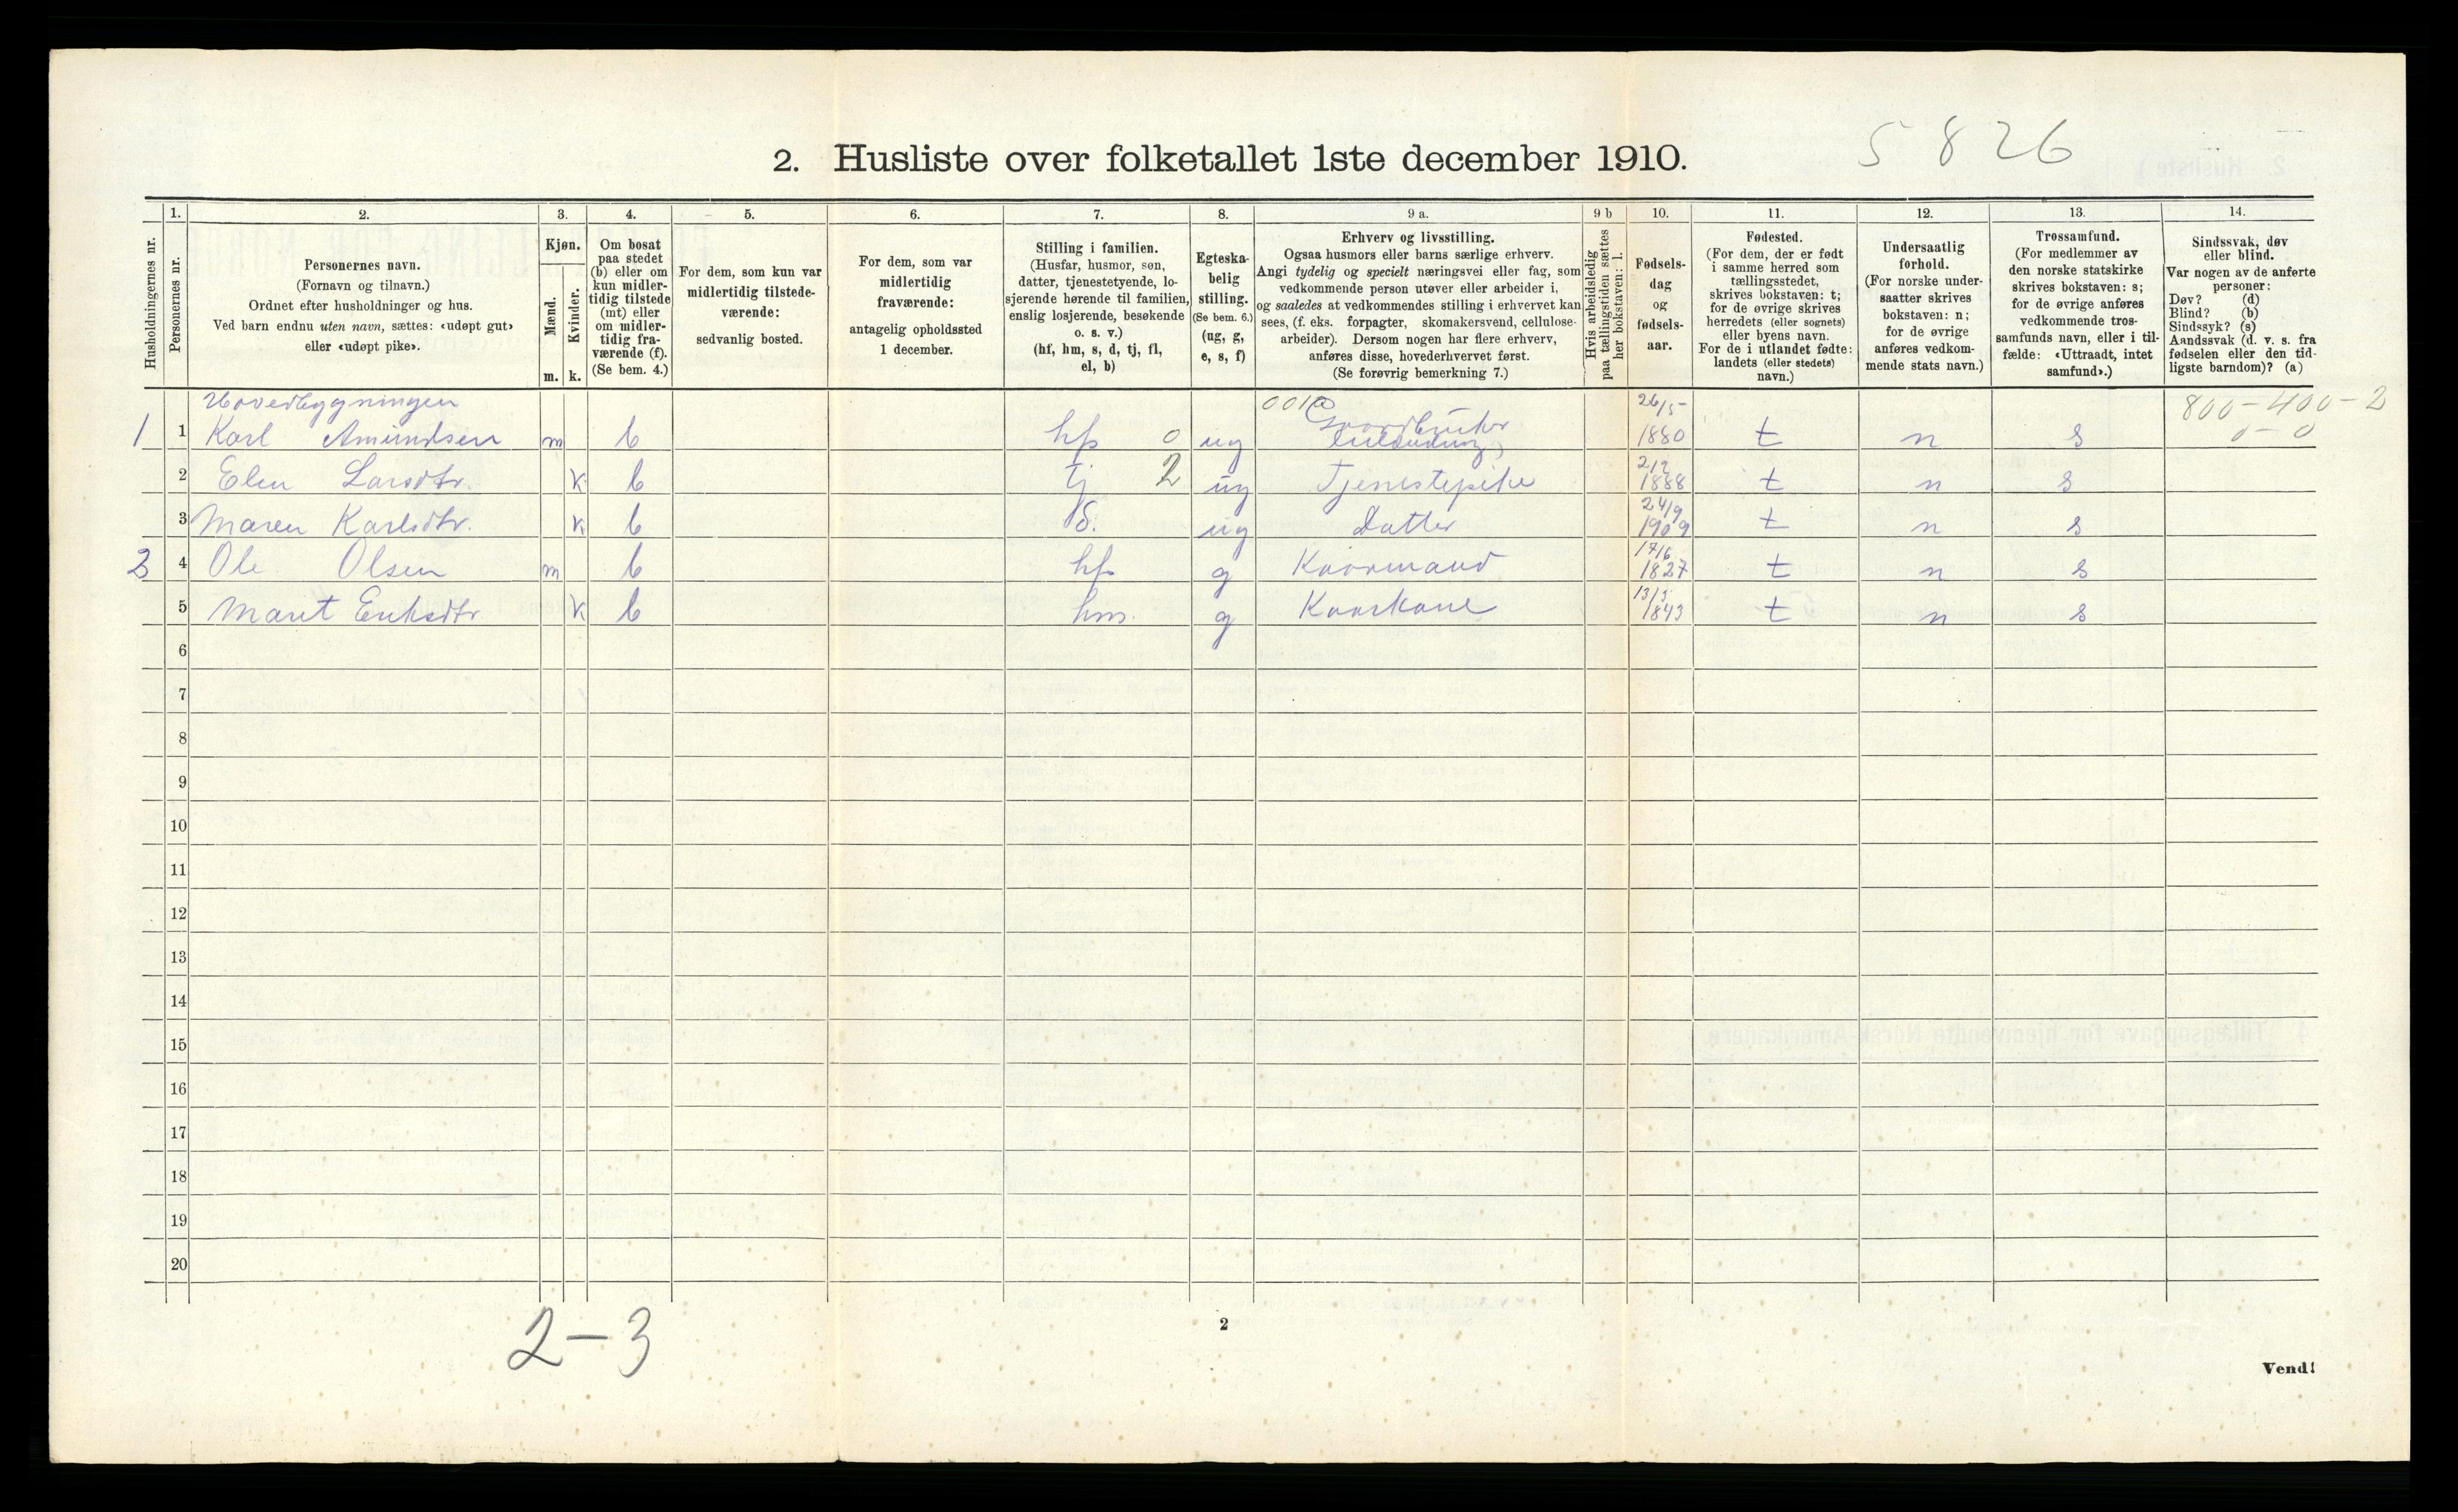 5826
2. Husliste over folketallet 1ste december 1910.
Husholdningernes nr.
1.
Personernes nr.
2.
Personernes navn.
(Fornavn og tilnavn.)
Ordnet efter husholdninger og hus.
Ved barn endnu uten navn, sættes: «udøpt gut»
eller «udøpt pike».
3.
Kjøn.
Mænd.
Kvinder.
m. k.
4.
Om bosat
paa stedet
(b) eller om
kun midler-
tidig tilstede
(mt) eller
om midler-
tidig fra-
værende (f).
(Se bem. 4.)
5.
For dem, som kun var
midlertidig tilstede-
værende:
sedvanlig bosted.
6.
For dem, som var
midlertidig
fraværende:
antagelig opholdssted
1 december.
7.
Stilling i familien.
(Husfar, husmor, søn,
datter, tjenestetyende, lo-
sjerende hørende til familien,
enslig losjerende, besøkende
o. s. v.)
(hf, hm, s, d, tj, fl,
el, b)
8.
Egteska-
belig
stilling.
(Se bem. 6.)
(ug, g,
e, s, f)
9 a.
Erhverv og livsstilling.
Ogsaa husmors eller barns særlige erhverv.
Angi tydelig og specielt næringsvei eller fag, som
vedkommende person utøver eller arbeider i,
og saaledes at vedkommendes stilling i erhvervet kan
sees, (f. eks. forpagter, skomakersvend, cellulose-
arbeider). Dersom nogen har flere erhverv,
anføres disse, hovederhvervet først.
(Se forøvrig bemerkning 7.)
9 b
Hvis arbeidsledig
paa tællingstiden sættes
her bokstaven: l.
10.
Fødsels-
dag
og
fødsels-
aar.
11.
Fødested.
(For dem, der er født
i samme herred som
tællingsstedet,
skrives bokstaven: t;
for de øvrige skrives
herredets (eller sognets)
eller byens navn.
For de i utlandet fødte:
landets (eller stedets)
navn.)
12.
Undersaatlig
forhold.
(For norske under-
saatter skrives
bokstaven: n;
for de øvrige
anføres vedkom-
mende stats navn.)
13.
Trossamfund.
(For medlemmer av
den norske statskirke
skrives bokstaven: s;
for de øvrige anføres
vedkommende tros-
samfunds navn, eller i til-
fælde: «Uttraadt, intet
samfund».)
14.
Sindssvak, døv
eller blind.
Var nogen av de anførte
personer:
Døv? (d)
Blind? (b)
Sindssyk? (s)
Aandssvak (d. v. s. fra
fødselen eller den tid-
ligste barndom)? (a)
Hovedbygningen 26/5 800-400-2
1 1 Karl Amundsen m b hf 0 ug Gaardbruker 1880 t n s 0-0
2 Elen Larsdtr. k b tj 2 ug Tjenestepike 2/2 1888 t n s
3 Maren Karlsdtr. k b d. ug Datter 24/9 1909 t n s
2 4 Ole Olsen m b hf g Kaarmand 17/6 1827 t n s
5 Marit Eriksdtr k b hm. g Kaarkone 13/5 1843 t n s
6
7
8
9
10
11
12
13
14
15
16
17
18
19
20
2-3
2
Vend!